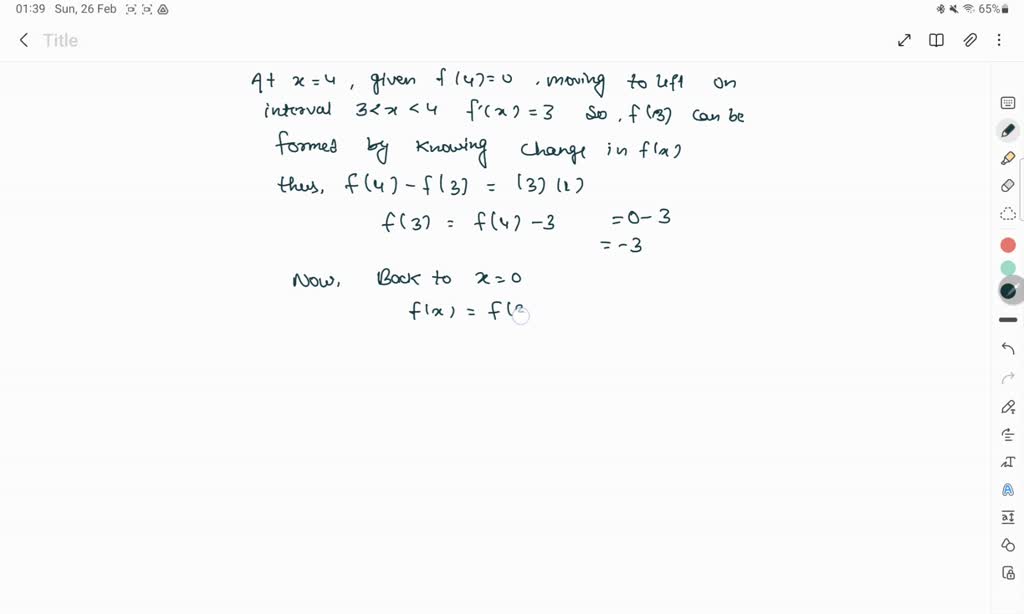 01:39 Sun, 26 Feb 65%
Title
At x = 4, given f(4)=0. moving to left on
interval 3<x<4 f'(x) = 3 So, f(3) can be
formed by knowing change in f(x)
thus, f(4) - f(3) = (3)(1)
f(3) = f(4) - 3 = 0 - 3
= -3
Now, Back to x = 0
f(x) = f(